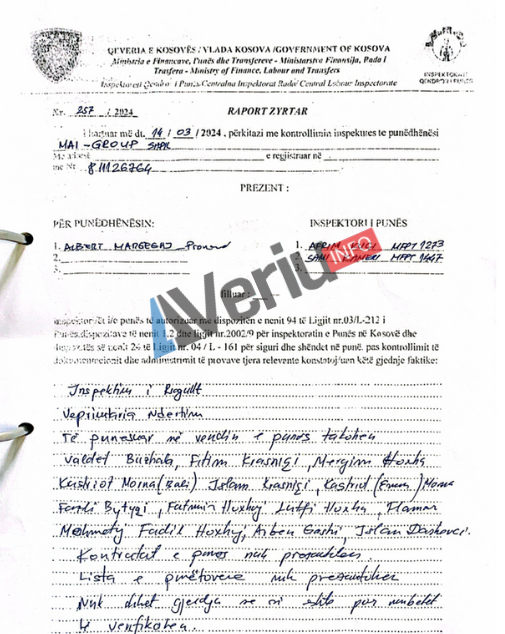 QEVERIA E KOSOVËS / VLADA KOSOVA /GOVERNMENT OF KOSOVA
Ministria e Financave, Punës dhe Transfereve - Ministarstva Finansija, Rada i
Trasfera - Ministry of Finance, Labour and Transfers
Inspektorati Qendror i Punës/Centralna Inspektorat Rada/ Central Labour Inspectorate
INSPEKTORATI
QENDROR I PUNËS
Nr. 257 / 2024
RAPORT ZYRTAR
i hartuar më dt. 14 / 03 / 2024 , përkitazi me kontrollimin inspektues te punëdhënësi
MAI-GROUP SHPK
Me adresë e regjistruar në
me Nr 811126764
PREZENT :
PËR PUNËDHËNËSIN:
INSPEKTORI I PUNËS
1. ALBERT MARGEGAJ Pronar
1. AFRIM MFPT 1273
2.
2. SAMI MFPT 1447
3.
3.
Veriu INFO
filluar :
Inspektori/ët e punës të autorizuar me dispozitën e nenit 94 të Ligjit nr.03/L-212 i
Punës,dispozitave të nenit 1,2 dhe ligjit nr.2002/9 për inspektoratin e Punës në Kosovë dhe
dispozitës së nenit 24 të Ligjit nr. 04 / L - 161 për siguri dhe shëndet në punë, pas kontrollimit të
dokumentacionit dhe administrimit të provave tjera relevante konstatoj/uan këtë gjendje faktike:
Inspektim i Rregullt
Veprimtaria Ndërtim
Të punesuar në vendin e punës takohen
Valdet Buzhala, Fitim Krasniqi, Mergim Hoxha
Kastriot Morina (Bali) Islam Krasniqi, Kastriot (Emin) Morina
Fadil Bytyqi, Fatmir Hoxhaj Lutfi Hoxha, Flamur
Mehmetaj Fadil Hoxhaj, Arben Gashi, Islam Dashevci.
Kontratat e punës nuk prezantohen.
Lista e punëtoreve nuk prezantohet
Nuk dihet gjendja se
të verifikohen.